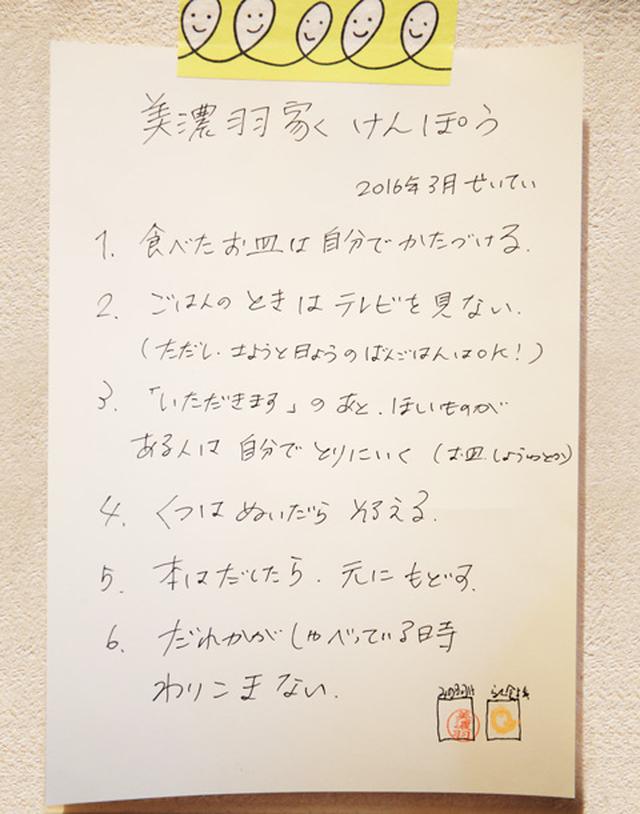 美濃羽家 けんぽう
2016年3月 せいてい
1. 食べたお皿は自分でかたづける.
2. ごはんのときはテレビを見ない.
(ただし.土ようと日ようのばんごはんはOK!)
3. 「いただきます」のあと.ほしいものが
ある人は 自分で とりにいく (お皿.しょうゆとか)
4. くつは ぬいだら そろえる.
5. 本はだしたら.元にもどす.
6. だれかがしゃべっている時
わりこまない.
美濃羽